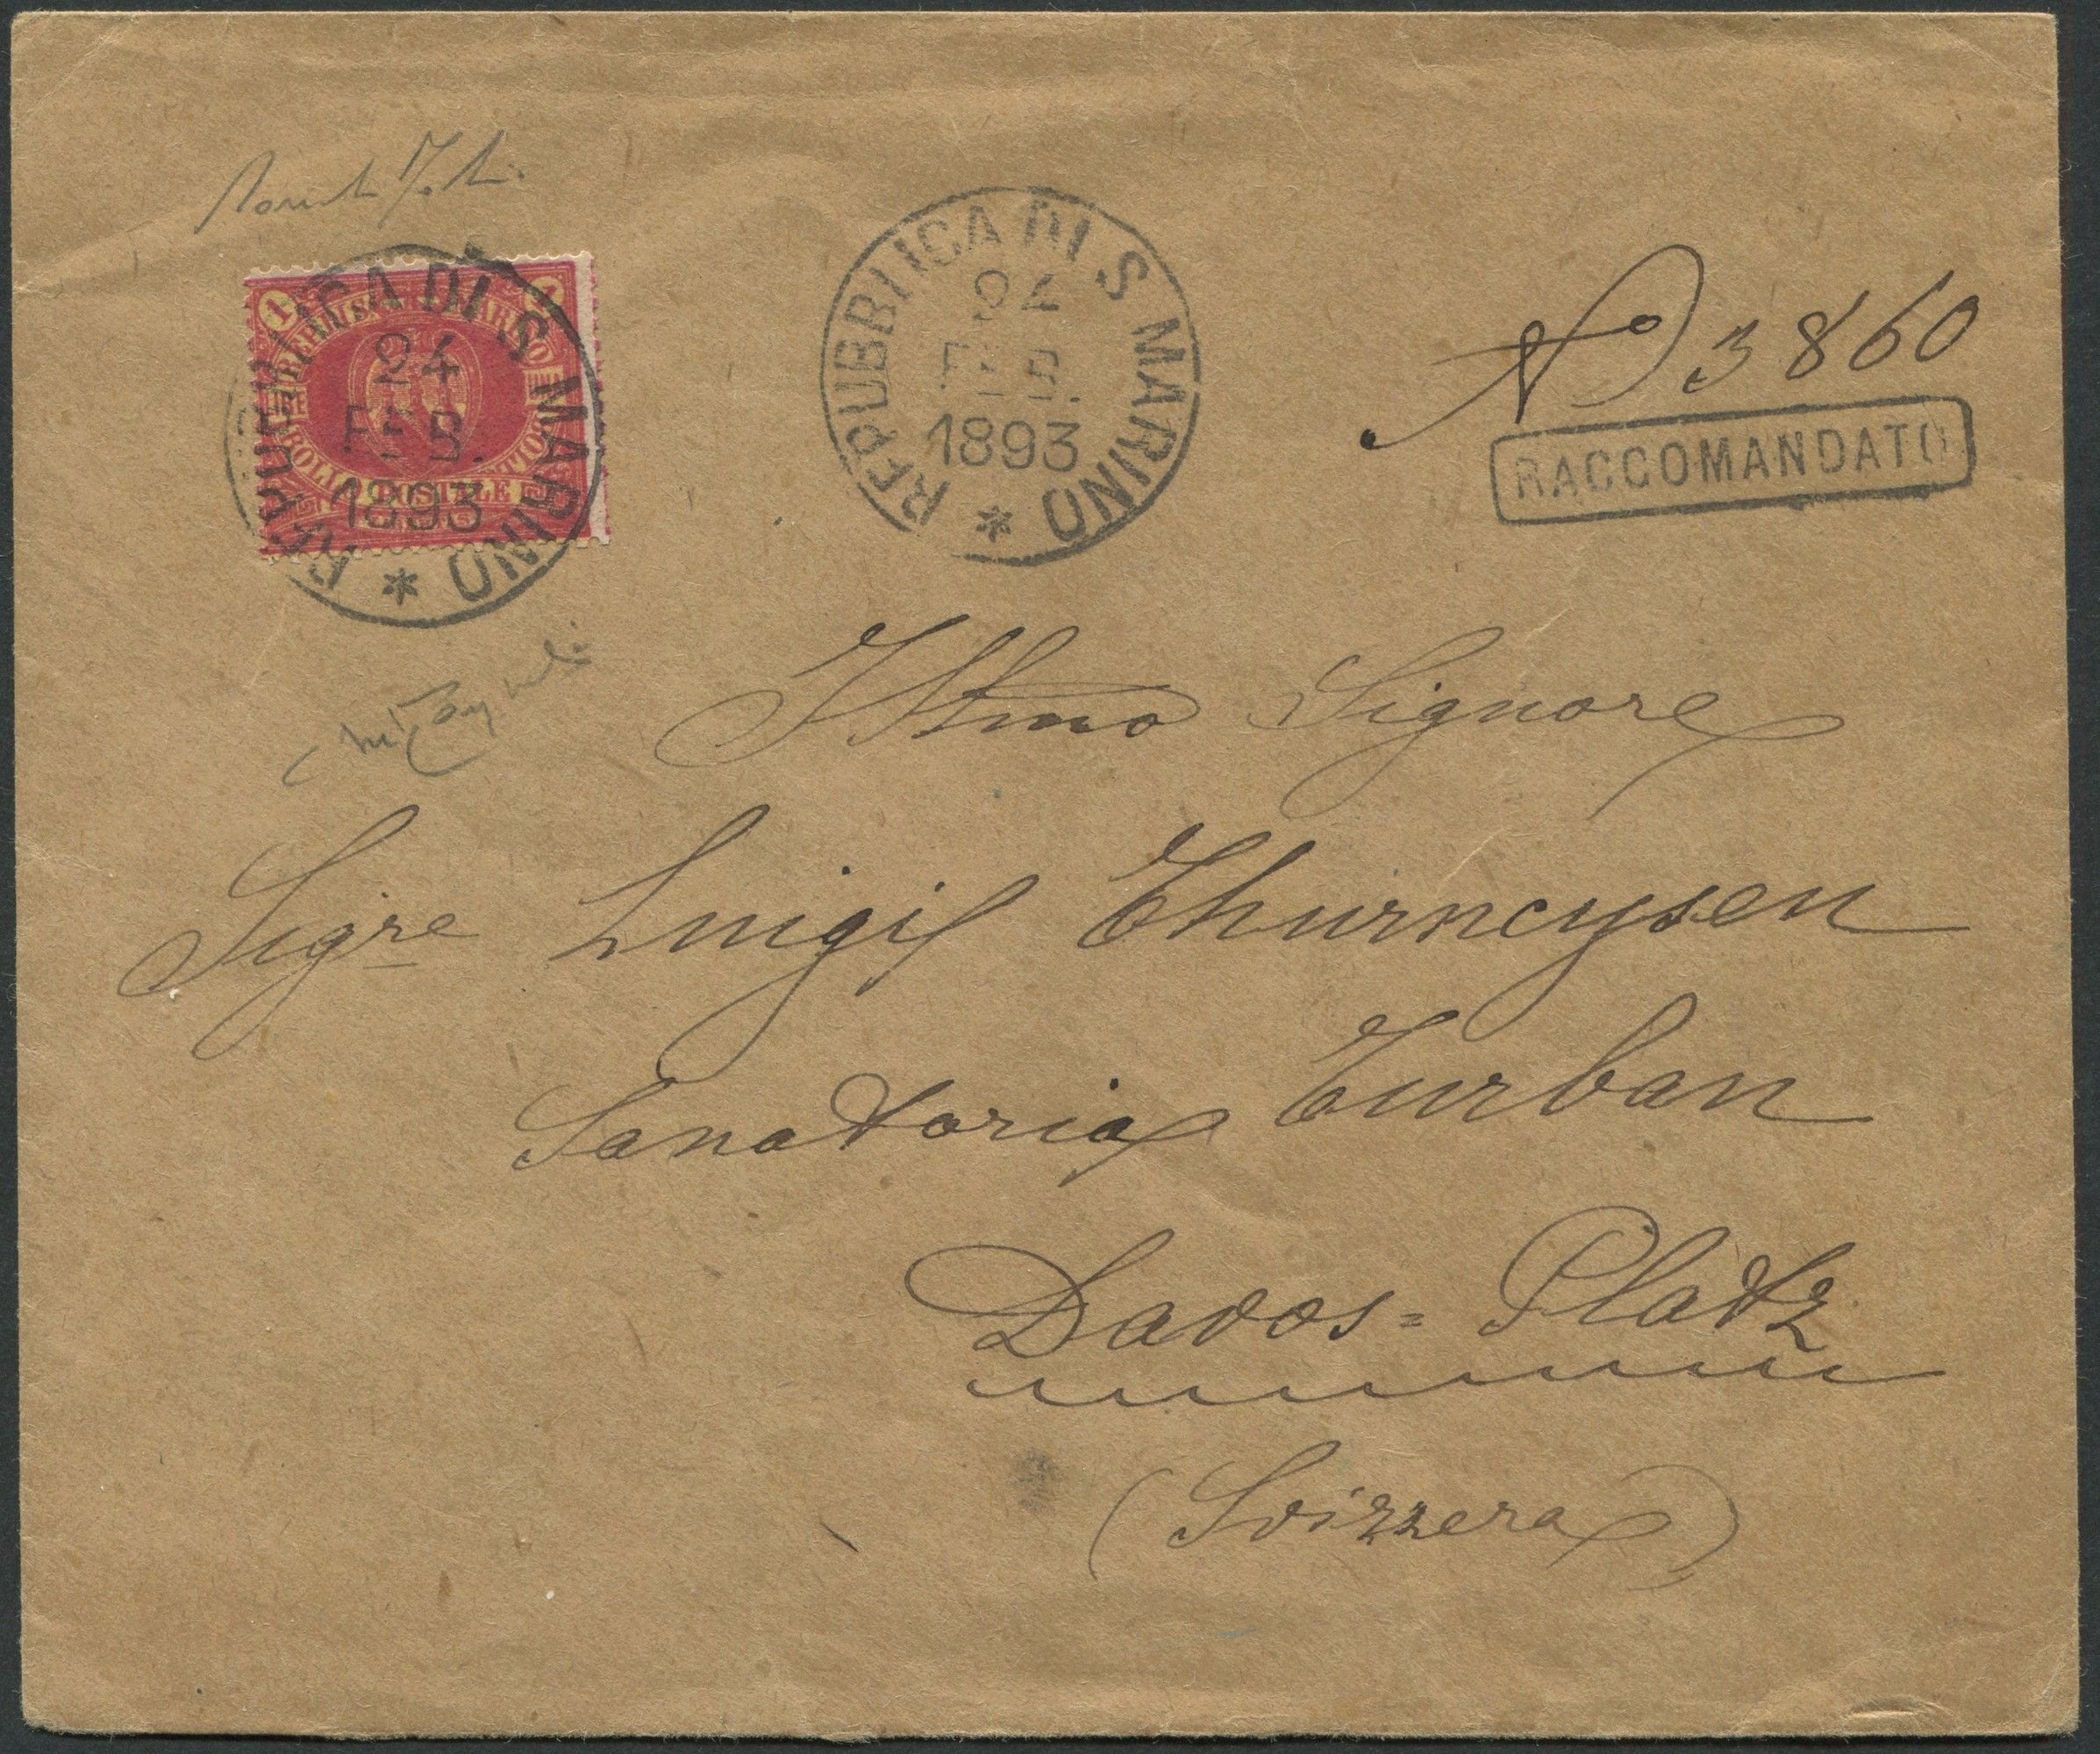 REPUBBLICA DI S. MARINO
24
FEB.
1893
REPUBBLICA DI S. MARINO
24
FEB.
1893
1
BOLLO POSTALE
No 3860
RACCOMANDATO
Illmo Signore
Sigre Luigi Thurneysen
Sanatoria Turban
Davos=Platz
(Svizzera)